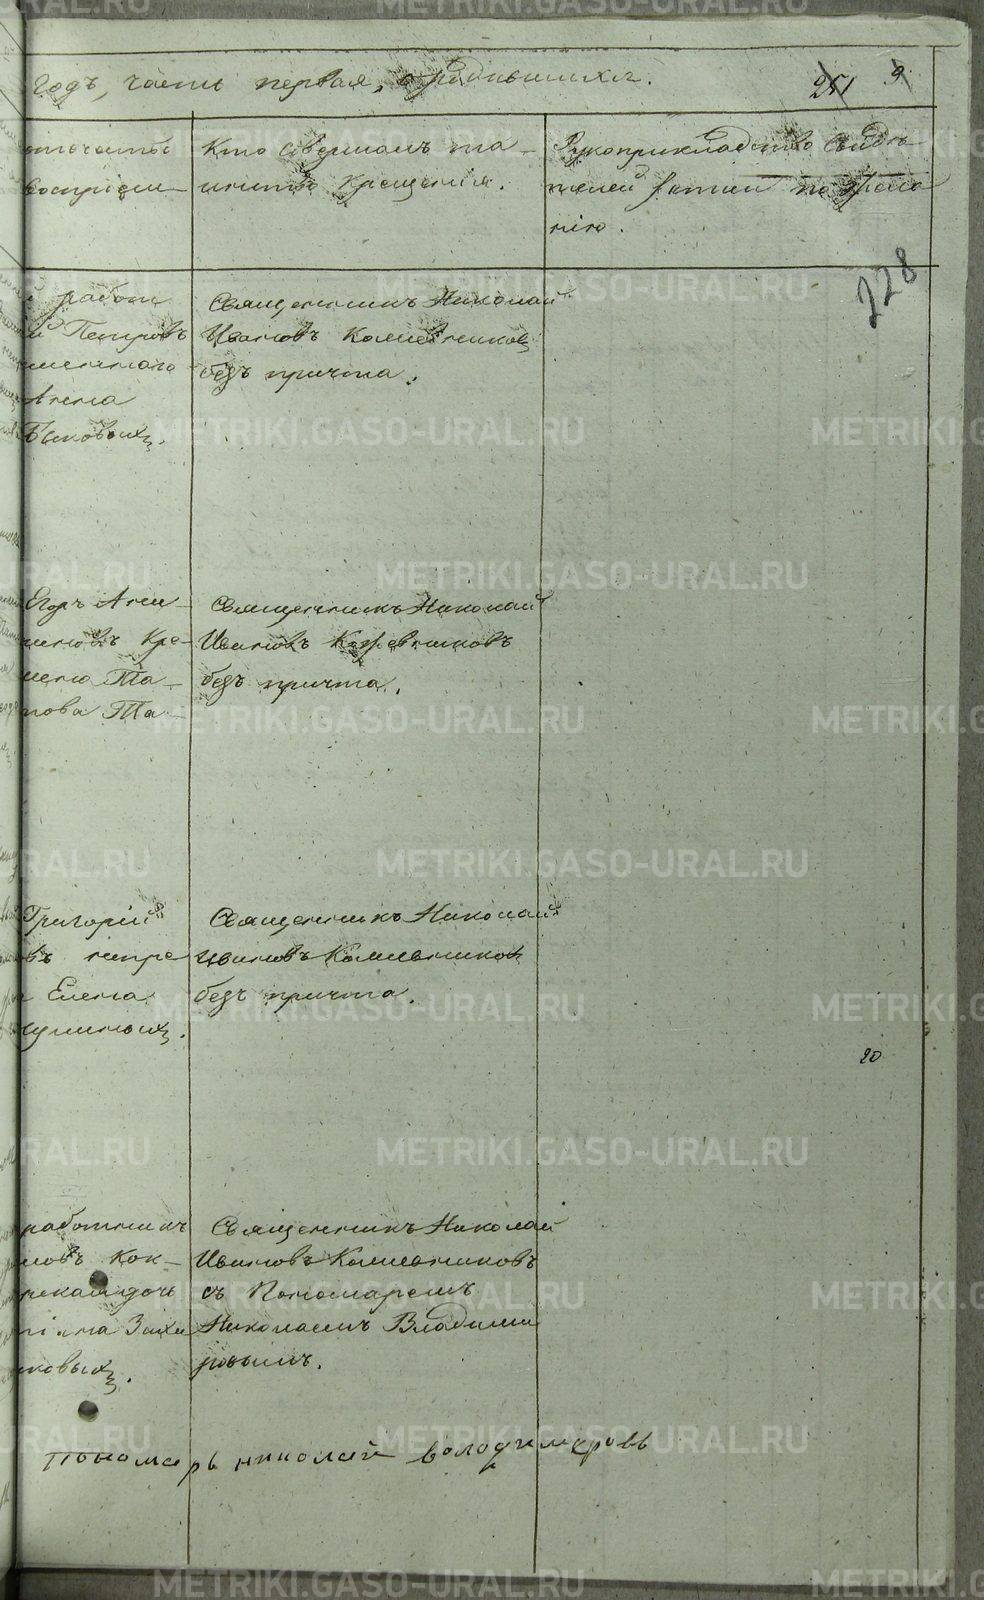 годъ, часть первая, о родившихся. 251 9
отчество
воспрiем
Кто совершалъ та-
инство крещенiя.
Рукоприкладство свидѣ
телей записи по жела
нiю.
228
работ
й Петровъ
Анна
Быковыхъ.
Священникъ Николай
Ивановъ Кожевниковъ
безъ причта.
Егоръ Ани-
симовъ Кре-
Та-
пова Та-
Священникъ Николай
Ивановъ Кожевниковъ
безъ причта.
Григорiй
въ непре
Елена
Священникъ Николай
Ивановъ Кожевниковъ
безъ причта.
20
работникъ
новъ Кок-
дочь
ковыхъ.
Священникъ Николай
Ивановъ Кожевниковъ
съ Пономаремъ
Николаемъ Владими
ровымъ.
Пономарь николай володимировъ
METRIKI.GASO-URAL.RU